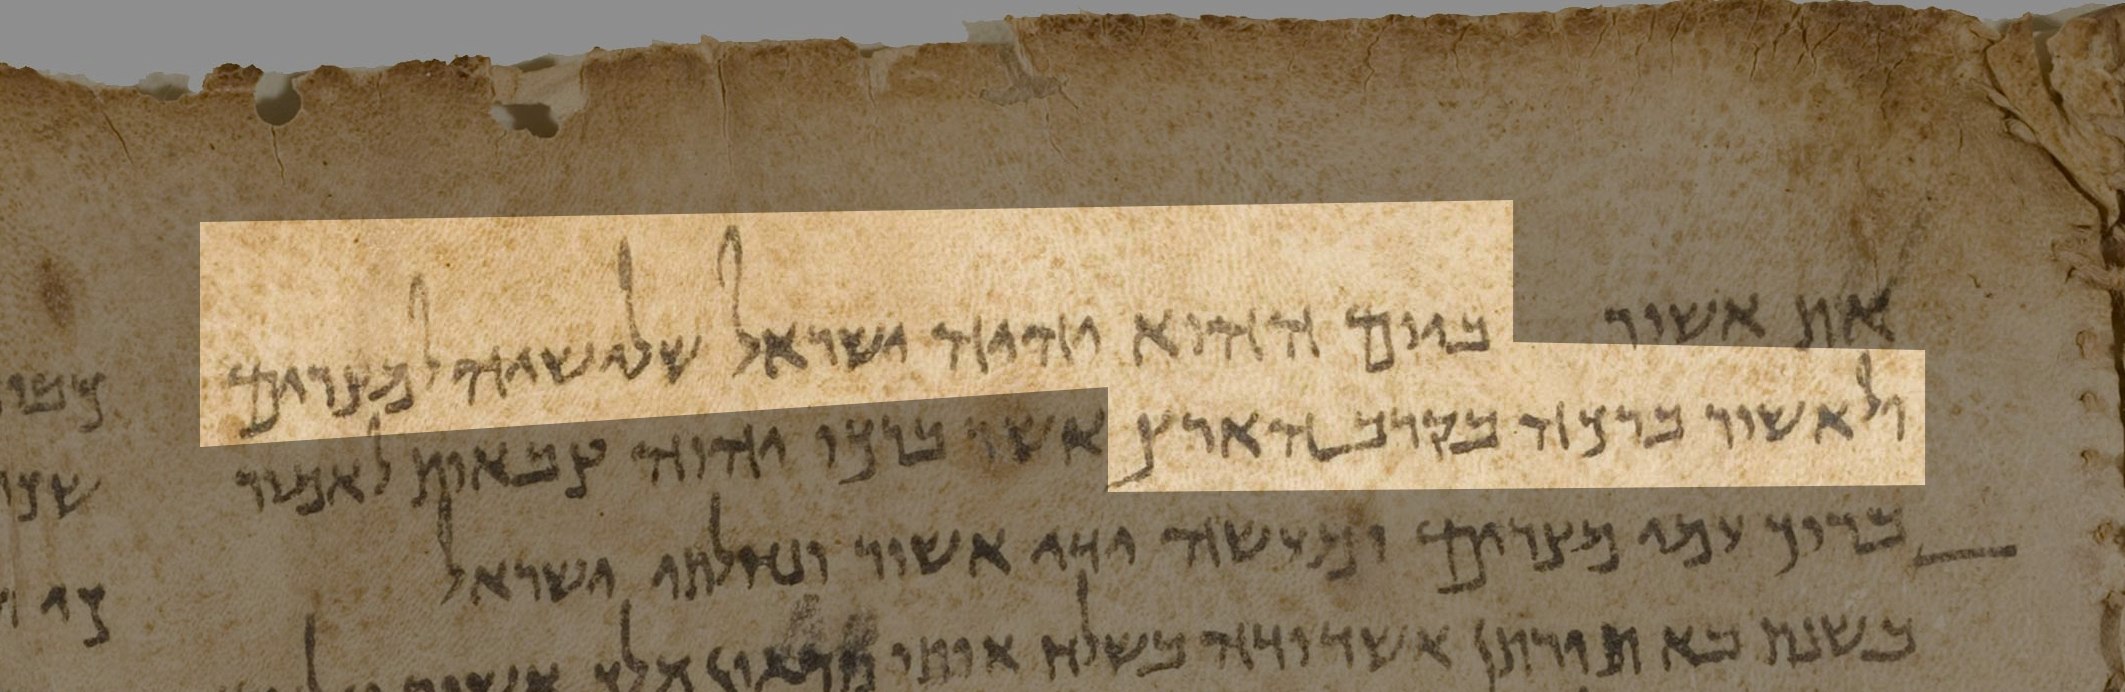 את אשור ביום ההוא יהיה ישראל שלישיה למצרים
ולאשור ברכה בקרב הארץ אשר ברכו יהוה צבאות לאמור
ברוך עמי מצרים ומעשה ידי אשור ונחלתי ישראל
בשנת בא תורתן אשדודה בשלח אותו מלך אשור